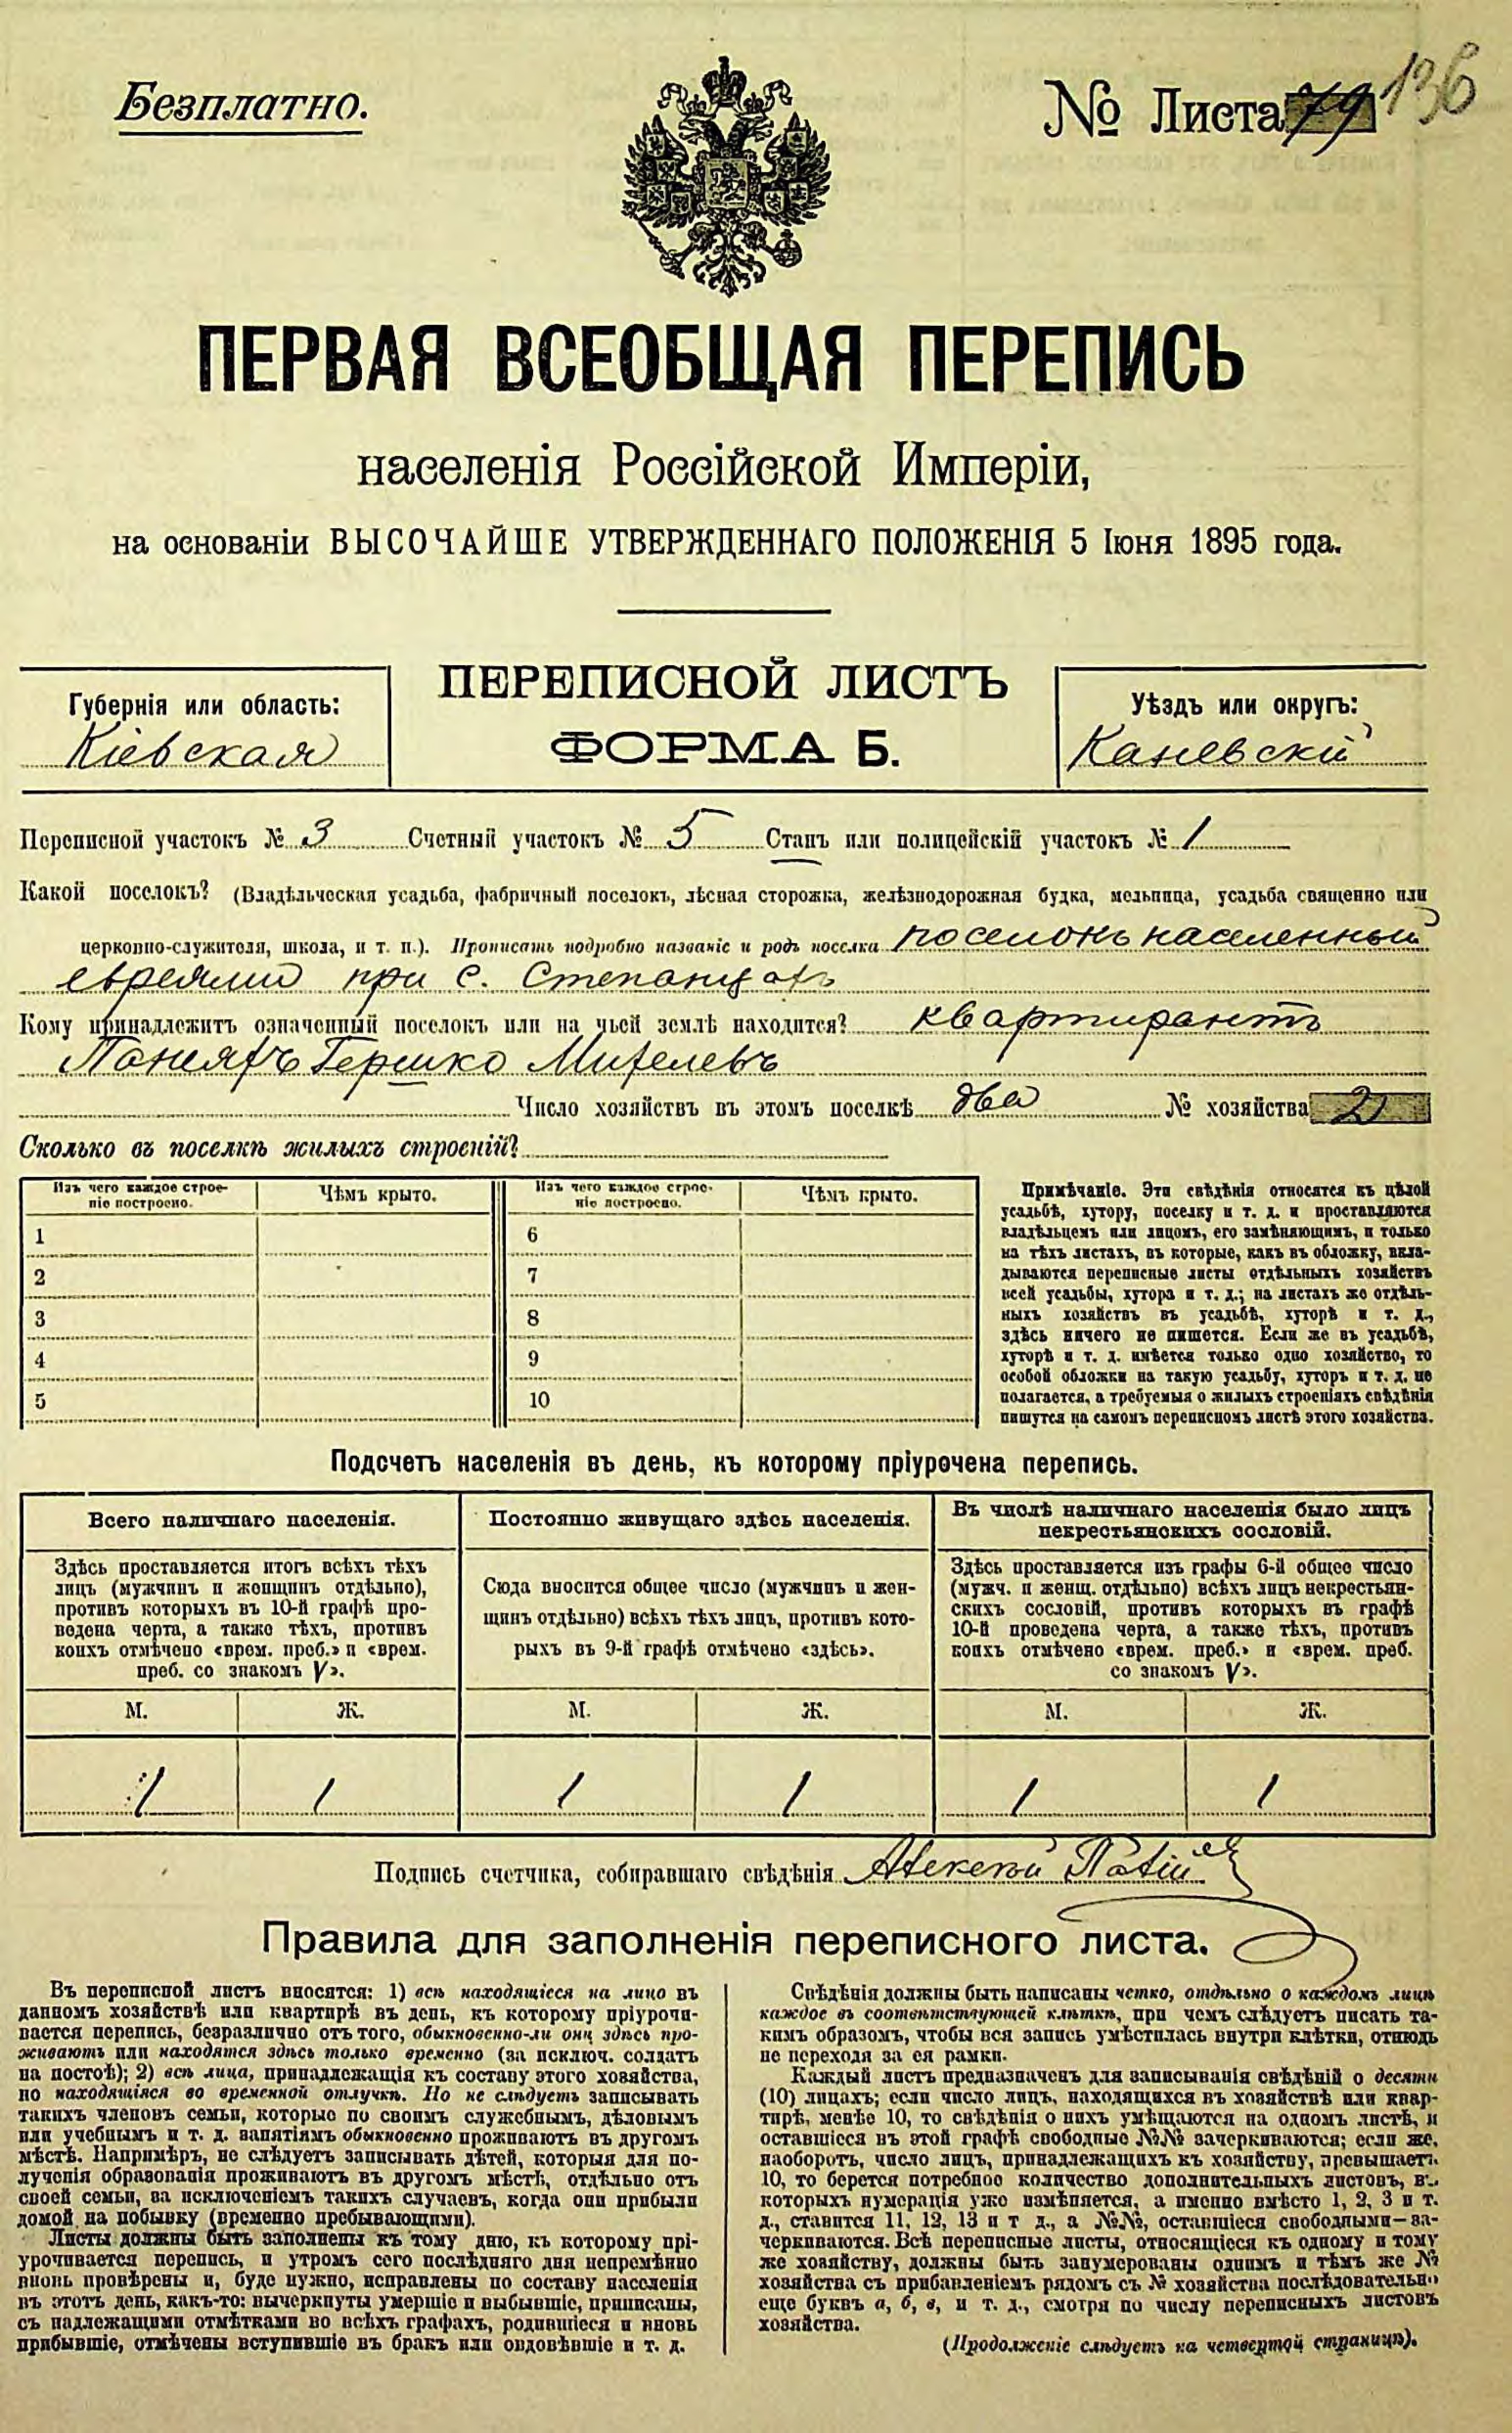 Безплатно.
№ Листа 79 136
ПЕРВАЯ ВСЕОБЩАЯ ПЕРЕПИСЬ
населенія Россійской Имперіи,
на основаніи ВЫСОЧАЙШЕ УТВЕРЖДЕННАГО ПОЛОЖЕНІЯ 5 Іюня 1895 года.
Губернія или область:
Кіевская
ПЕРЕПИСНОЙ ЛИСТЪ
ФОРМА Б.
Уѣздъ или округъ:
Каневскій
Переписной участокъ № 3 Счетный участокъ № 5 Станъ или полицейскій участокъ № 1
Какой поселокъ? (Владѣльческая усадьба, фабричный поселокъ, лѣсная сторожка, желѣзнодорожная будка, мельница, усадьба священно или
церковно-служителя, школа, и т. п.). Прописать подробно названіе и родъ поселка поселокъ населенный
евреями при с. Степанцахъ
Кому принадлежитъ означенный поселокъ или на чьей землѣ находится? квартирантъ
Гершко
Число хозяйствъ въ этомъ поселкѣ два № хозяйства 2
Сколько въ поселкѣ жилыхъ строеній?
Изъ чего каждое строе-
ніе построено.
Чѣмъ крыто.
Изъ чего каждое строе-
ніе построено.
Чѣмъ крыто.
1 6
2 7
3 8
4 9
5 10
Примѣчаніе. Эти свѣдѣнія относятся къ цѣлой
усадьбѣ, хутору, поселку и т. д. и проставляются
владѣльцемъ или лицомъ, его замѣняющимъ, и только
на тѣхъ листахъ, въ которые, какъ въ обложку, вкла-
дываются переписные листы отдѣльныхъ хозяйствъ
всей усадьбы, хутора и т. д.; на листахъ же отдѣль-
ныхъ хозяйствъ въ усадьбѣ, хуторѣ и т. д.,
здѣсь ничего не пишется. Если же въ усадьбѣ,
хуторѣ и т. д. имѣется только одно хозяйство, то
особой обложки на такую усадьбу, хуторъ и т. д. не
полагается, а требуемыя о жилыхъ строеніяхъ свѣдѣнія
пишутся на самомъ переписномъ листѣ этого хозяйства.
Подсчетъ населенія въ день, къ которому пріурочена перепись.
Всего наличнаго населенія.
Здѣсь проставляется итогъ всѣхъ тѣхъ
лицъ (мужчинъ и женщинъ отдѣльно),
противъ которыхъ въ 10-й графѣ про-
ведена черта, а также тѣхъ, противъ
коихъ отмѣчено «врем. преб.» и «врем.
преб. со знакомъ V».
Постоянно живущаго здѣсь населенія.
Сюда вносится общее число (мужчинъ и жен-
щинъ отдѣльно) всѣхъ тѣхъ лицъ, противъ кото-
рыхъ въ 9-й графѣ отмѣчено «здѣсь».
Въ числѣ наличнаго населенія было лицъ
некрестьянскихъ сословій.
Здѣсь проставляется изъ графы 6-й общее число
(мужч. и женщ. отдѣльно) всѣхъ лицъ некрестьян-
скихъ сословій, противъ которыхъ въ графѣ
10-й проведена черта, а также тѣхъ, противъ
коихъ отмѣчено «врем. преб.» и «врем. преб.
со знакомъ V».
М. Ж. М. Ж. М. Ж.
1 1 1 1 1 1
Подпись счетчика, собиравшаго свѣдѣнія Алексѣй
Правила для заполненія переписного листа.
Въ переписной листъ вносятся: 1) всѣ находящіеся на лицо въ
данномъ хозяйствѣ или квартирѣ въ день, къ которому пріурочи-
вается перепись, безразлично отъ того, обыкновенно-ли они здѣсь про-
живаютъ или находятся здѣсь только временно (за исключ. солдатъ
на постоѣ); 2) всѣ лица, принадлежащія къ составу этого хозяйства,
но находящіяся во временной отлучкѣ. Но не слѣдуетъ записывать
такихъ членовъ семьи, которые по своимъ служебнымъ, дѣловымъ
или учебнымъ и т. д. занятіямъ обыкновенно проживаютъ въ другомъ
мѣстѣ. Напримѣръ, не слѣдуетъ записывать дѣтей, которыя для по-
лученія образованія проживаютъ въ другомъ мѣстѣ, отдѣльно отъ
своей семьи, за исключеніемъ такихъ случаевъ, когда они прибыли
домой на побывку (временно пребывающими).
Листы должны быть заполнены къ тому дню, къ которому прі-
урочивается перепись, и утромъ сего послѣдняго дня непремѣнно
вновь провѣрены и, буде нужно, исправлены по составу населенія
въ этотъ день, какъ-то: вычеркнуты умершіе и выбывшіе, приписаны,
съ надлежащими отмѣтками во всѣхъ графахъ, родившіеся и вновь
прибывшіе, отмѣчены вступившіе въ бракъ или овдовѣвшіе и т. д.
Свѣдѣнія должны быть написаны четко, отдѣльно о каждомъ лицѣ
каждое въ соотвѣтствующей клѣткѣ, при чемъ слѣдуетъ писать та-
кимъ образомъ, чтобы вся запись умѣстилась внутри клѣтки, отнюдь
не переходя за ея рамки.
Каждый листъ предназначенъ для записыванія свѣдѣній о десяти
(10) лицахъ; если число лицъ, находящихся въ хозяйствѣ или квар-
тирѣ, менѣе 10, то свѣдѣнія о нихъ умѣщаются на одномъ листѣ, и
оставшіеся въ этой графѣ свободные №№ зачеркиваются; если же,
наоборотъ, число лицъ, принадлежащихъ къ хозяйству, превышаетъ
10, то берется потребное количество дополнительныхъ листовъ, въ
которыхъ нумерація уже измѣняется, а именно вмѣсто 1, 2, 3 и т.
д., ставится 11, 12, 13 и т д., а №№, оставшіеся свободными—за-
черкиваются. Всѣ переписные листы, относящіеся къ одному и тому
же хозяйству, должны быть занумерованы однимъ и тѣмъ же №
хозяйства съ прибавленіемъ рядомъ съ № хозяйства послѣдовательно
еще буквъ а, б, в, и т. д., смотря по числу переписныхъ листовъ
хозяйства.
(Продолженіе слѣдуетъ на четвертой страницѣ).